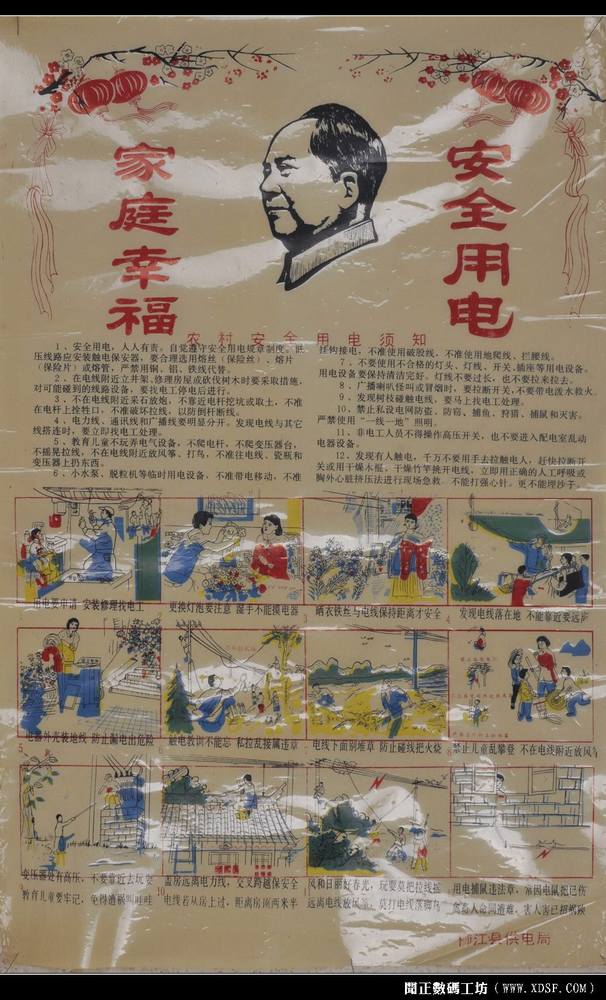 家庭幸福
安全用电
农村安全用电须知
1、安全用电，人人有责。自觉遵守安全用电规章制度。低
压线路应安装触电保安器，要合理选用熔丝（保险丝）、熔片
（保险片）或熔管，严禁用铜、铝、铁线代替。
2、在电线附近立井架、修理房屋或砍伐树木时要采取措施，
对可能碰到的线路设备，要找电工停电后进行。
3、不在电线附近采石放炮，不靠近电杆挖坑或取土，不准
在电杆上拴牲口，不准破坏拉线，以防倒杆断线。
4、电力线、通讯线和广播线要明显分开。发现电线与其它
线搭连时，要立即找电工处理。
5、教育儿童不玩弄电气设备，不爬电杆，不爬变压器台，
不摇晃拉线，不在电线附近放风筝、打鸟，不准往电线、瓷瓶和
变压器上扔东西。
6、小水泵、脱粒机等临时用电设备，不准带电移动，不准
挂钩接电，不准使用破股线，不准使用地爬线、拦腰线。
7、不要使用不合格的灯头、灯线、开关、插座等用电设备。
用电设备要保持清洁完好。灯线不要过长，也不要拉来拉去。
8、广播喇叭怪叫或冒烟时，要拉断开关，不要带电泼水救火。
9、发现树枝碰触电线，要马上找电工处理。
10、禁止私设电网防盗、防窃、捕鱼、狩猎、捕鼠和灭害。
严禁使用“一线一地”照明。
11、非电工人员不得操作高压开关，也不要进入配电室乱动
电器设备。
12、发现有人触电，千万不要用手去拉触电人，赶快拉断开
关或用干燥木棍、干燥竹竿挑开电线，立即用正确的人工呼吸或
胸外心脏挤压法进行现场急救。不能打强心针。更不能埋沙子。
用电要申请 安装修理找电工
更换灯泡要注意 湿手不能摸电器
晒衣铁丝与电线保持距离才安全
发现电线落在地 不能靠近要远步
电器外壳装地线 防止漏电出危险
触电教训不能忘 私拉乱接属违章
电线下面别堆草 防止碰线把火烧
禁止儿童乱攀登 不在电线附近放风筝
变压器处有高压，不要靠近去玩耍
教育儿童要牢记，免得酒
盖房远离电力线，交叉跨越保安全
电线若从房上过，距离房顶两米半
风和日丽好春光，玩耍莫把拉线摇
远离电线放风筝，莫打电线落脚鸟
用电捕鼠违法章，常因电鼠把己伤
害人害己招祸殃
江县供电局
聞正數碼工坊（www.XDSF.com）